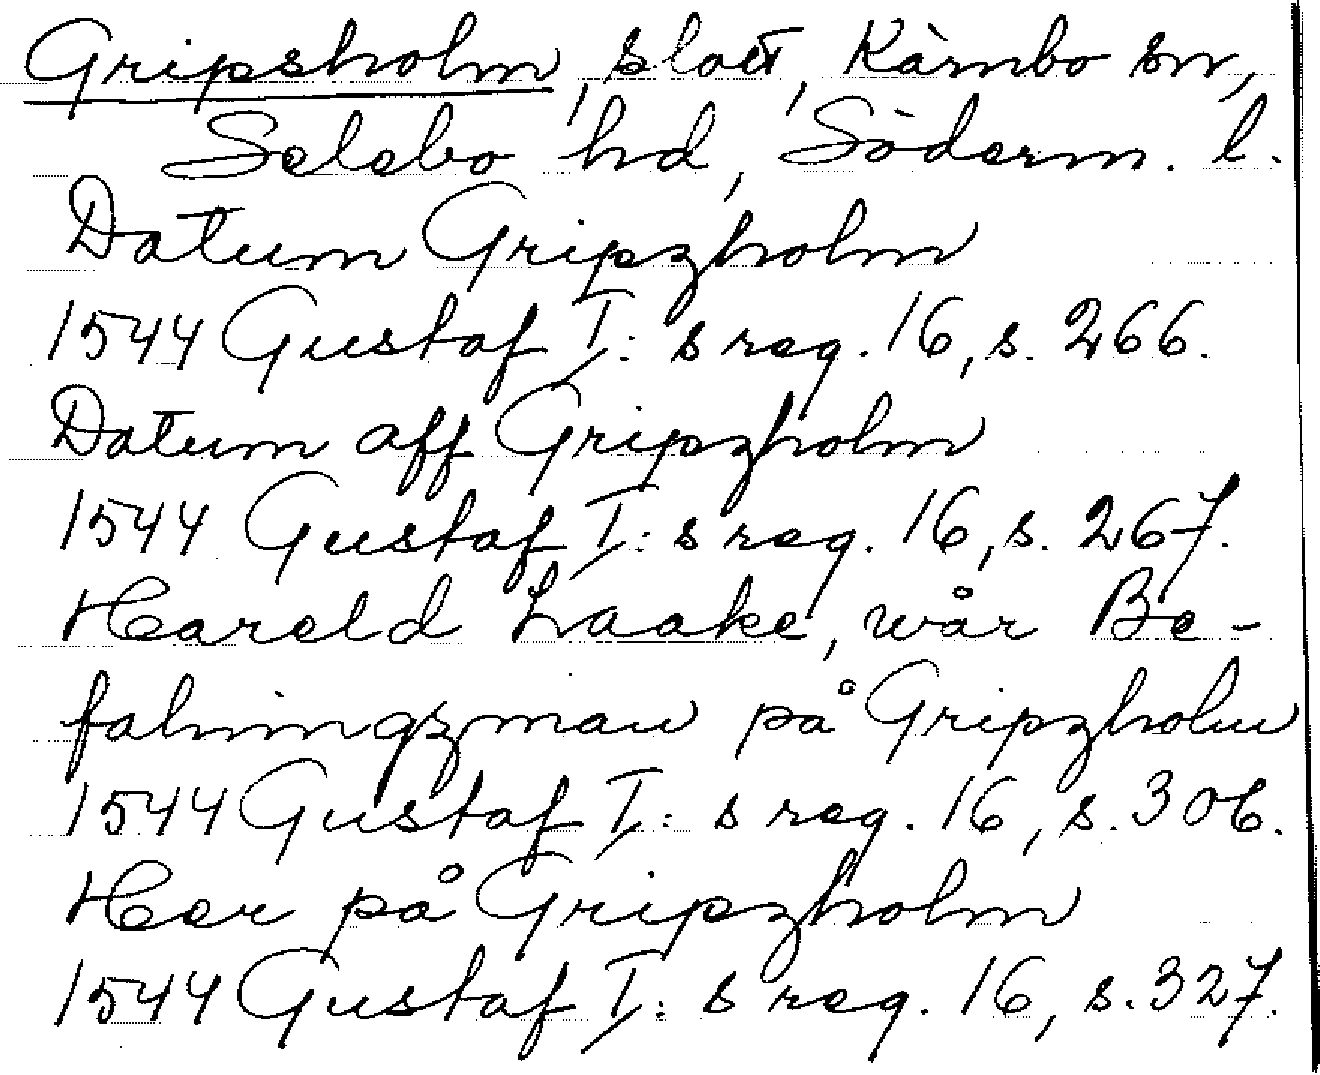 Gripsholm, slott, Kärnbo sn,
Selebo hd, Söderm. l.
Datum Gripzholm
1544 Gustaf I:s reg. 16, s. 266.
Datum aff Gripzholm
1544 Gustaf I:s reg. 16, s. 267.
Hareld Laake, wår Be-
falningzman på Gripzholm
1544 Gustaf I:s reg. 16, s. 306.
Her på Gripzholm
1544 Gustaf I:s reg. 16, s. 327.